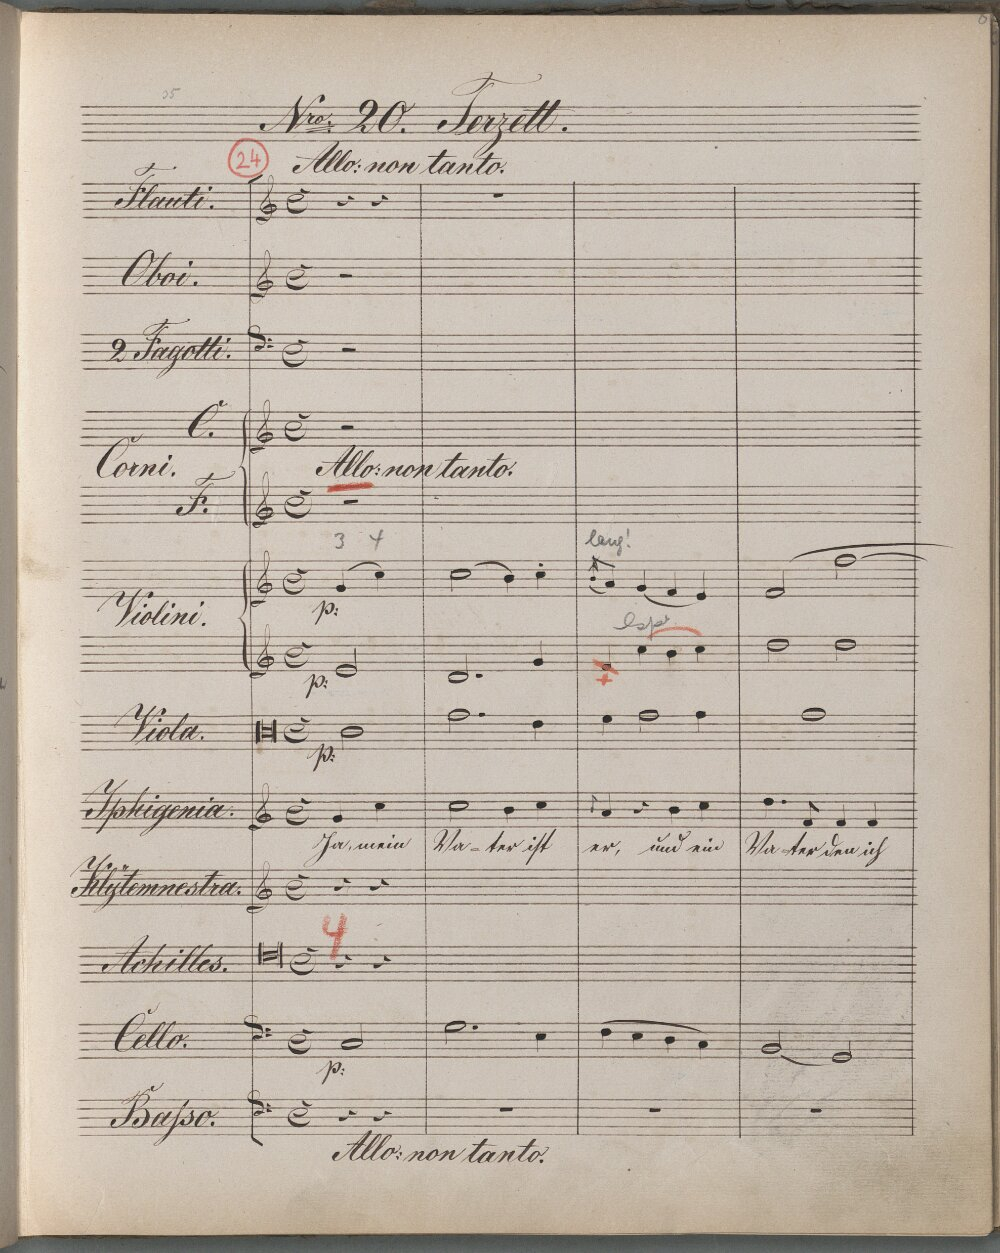 Nro. 20. Terzett.
24 Allo: non tanto.
Flauti.
Oboi.
2 Fagotti.
C.
Corni.
Allo: non tanto.
F.
3 4 lang!
p:
Violini.
espr.
p:
Viola.
p:
Iphigenia.
Ja, mein Va-ter ist er, und ein Va-ter den ich
Klÿtemnestra.
4
Achilles.
Cello.
p:
Basso.
Allo: non tanto.